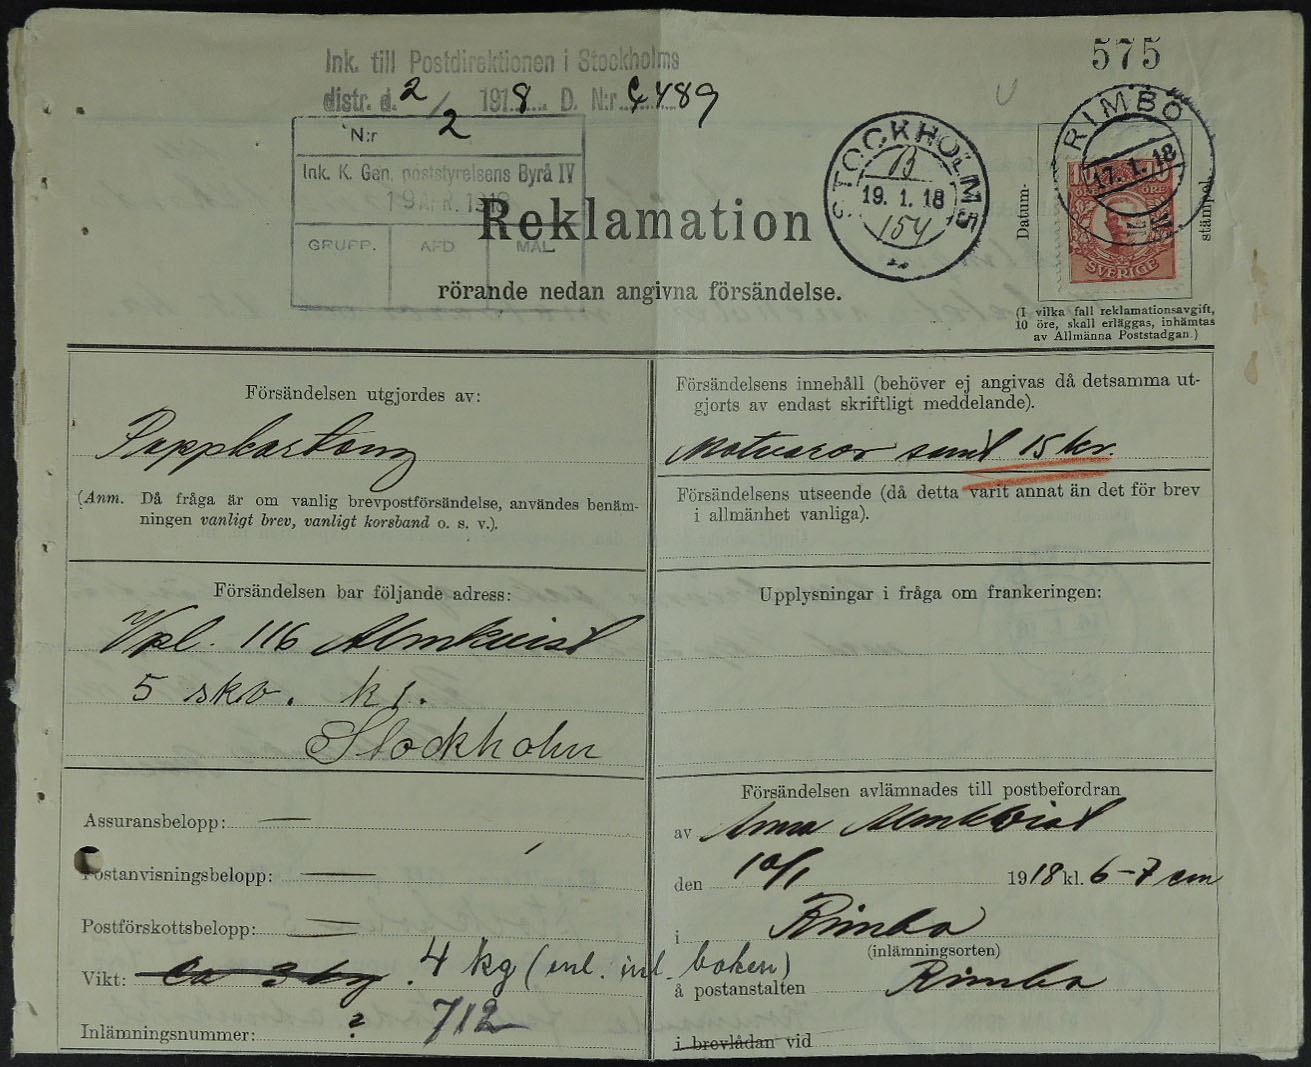 575
Ink. till Postdirektionen i Stockholms
distr. d. 2/2 1918 D. N:r 4489
N:r
Ink. K. Gen. poststyrelsens Byrå IV
19 APR. 1918
GRUPP. AFD MÅL
STOCKHOLM 5
13
19. 1. 18
154
RIMBO
17. 1. 18
10 10
ÖRE ÖRE
SVERIGE
Datum-
stämpel.
Reklamation
rörande nedan angivna försändelse.
(I vilka fall reklamationsavgift,
10 öre, skall erläggas, inhämtas
av Allmänna Poststadgan.)
Försändelsen utgjordes av:
Pappkartong
(Anm. Då fråga är om vanlig brevpostförsändelse, användes benäm-
ningen vanligt brev, vanligt korsband o. s. v.).
Försändelsens innehåll (behöver ej angivas då detsamma ut-
gjorts av endast skriftligt meddelande).
Matvaror samt 15 kr.
Försändelsens utseende (då detta varit annat än det för brev
i allmänhet vanliga).
Försändelsen bar följande adress:
Vpl. 116 Almkvist
5 skv. k 1.
Stockholm
Upplysningar i fråga om frankeringen:
Assuransbelopp: —
Postanvisningsbelopp: —
Postförskottsbelopp: —
Vikt: ca 3 kg. 4 kg (enl. inl. boken)
Inlämningsnummer: ? 712
Försändelsen avlämnades till postbefordran
av Anna Almkvist
den 10/1 1918 kl. 6-7 em
i Rimbo
(inlämningsorten)
å postanstalten Rimbo
i brevlådan vid